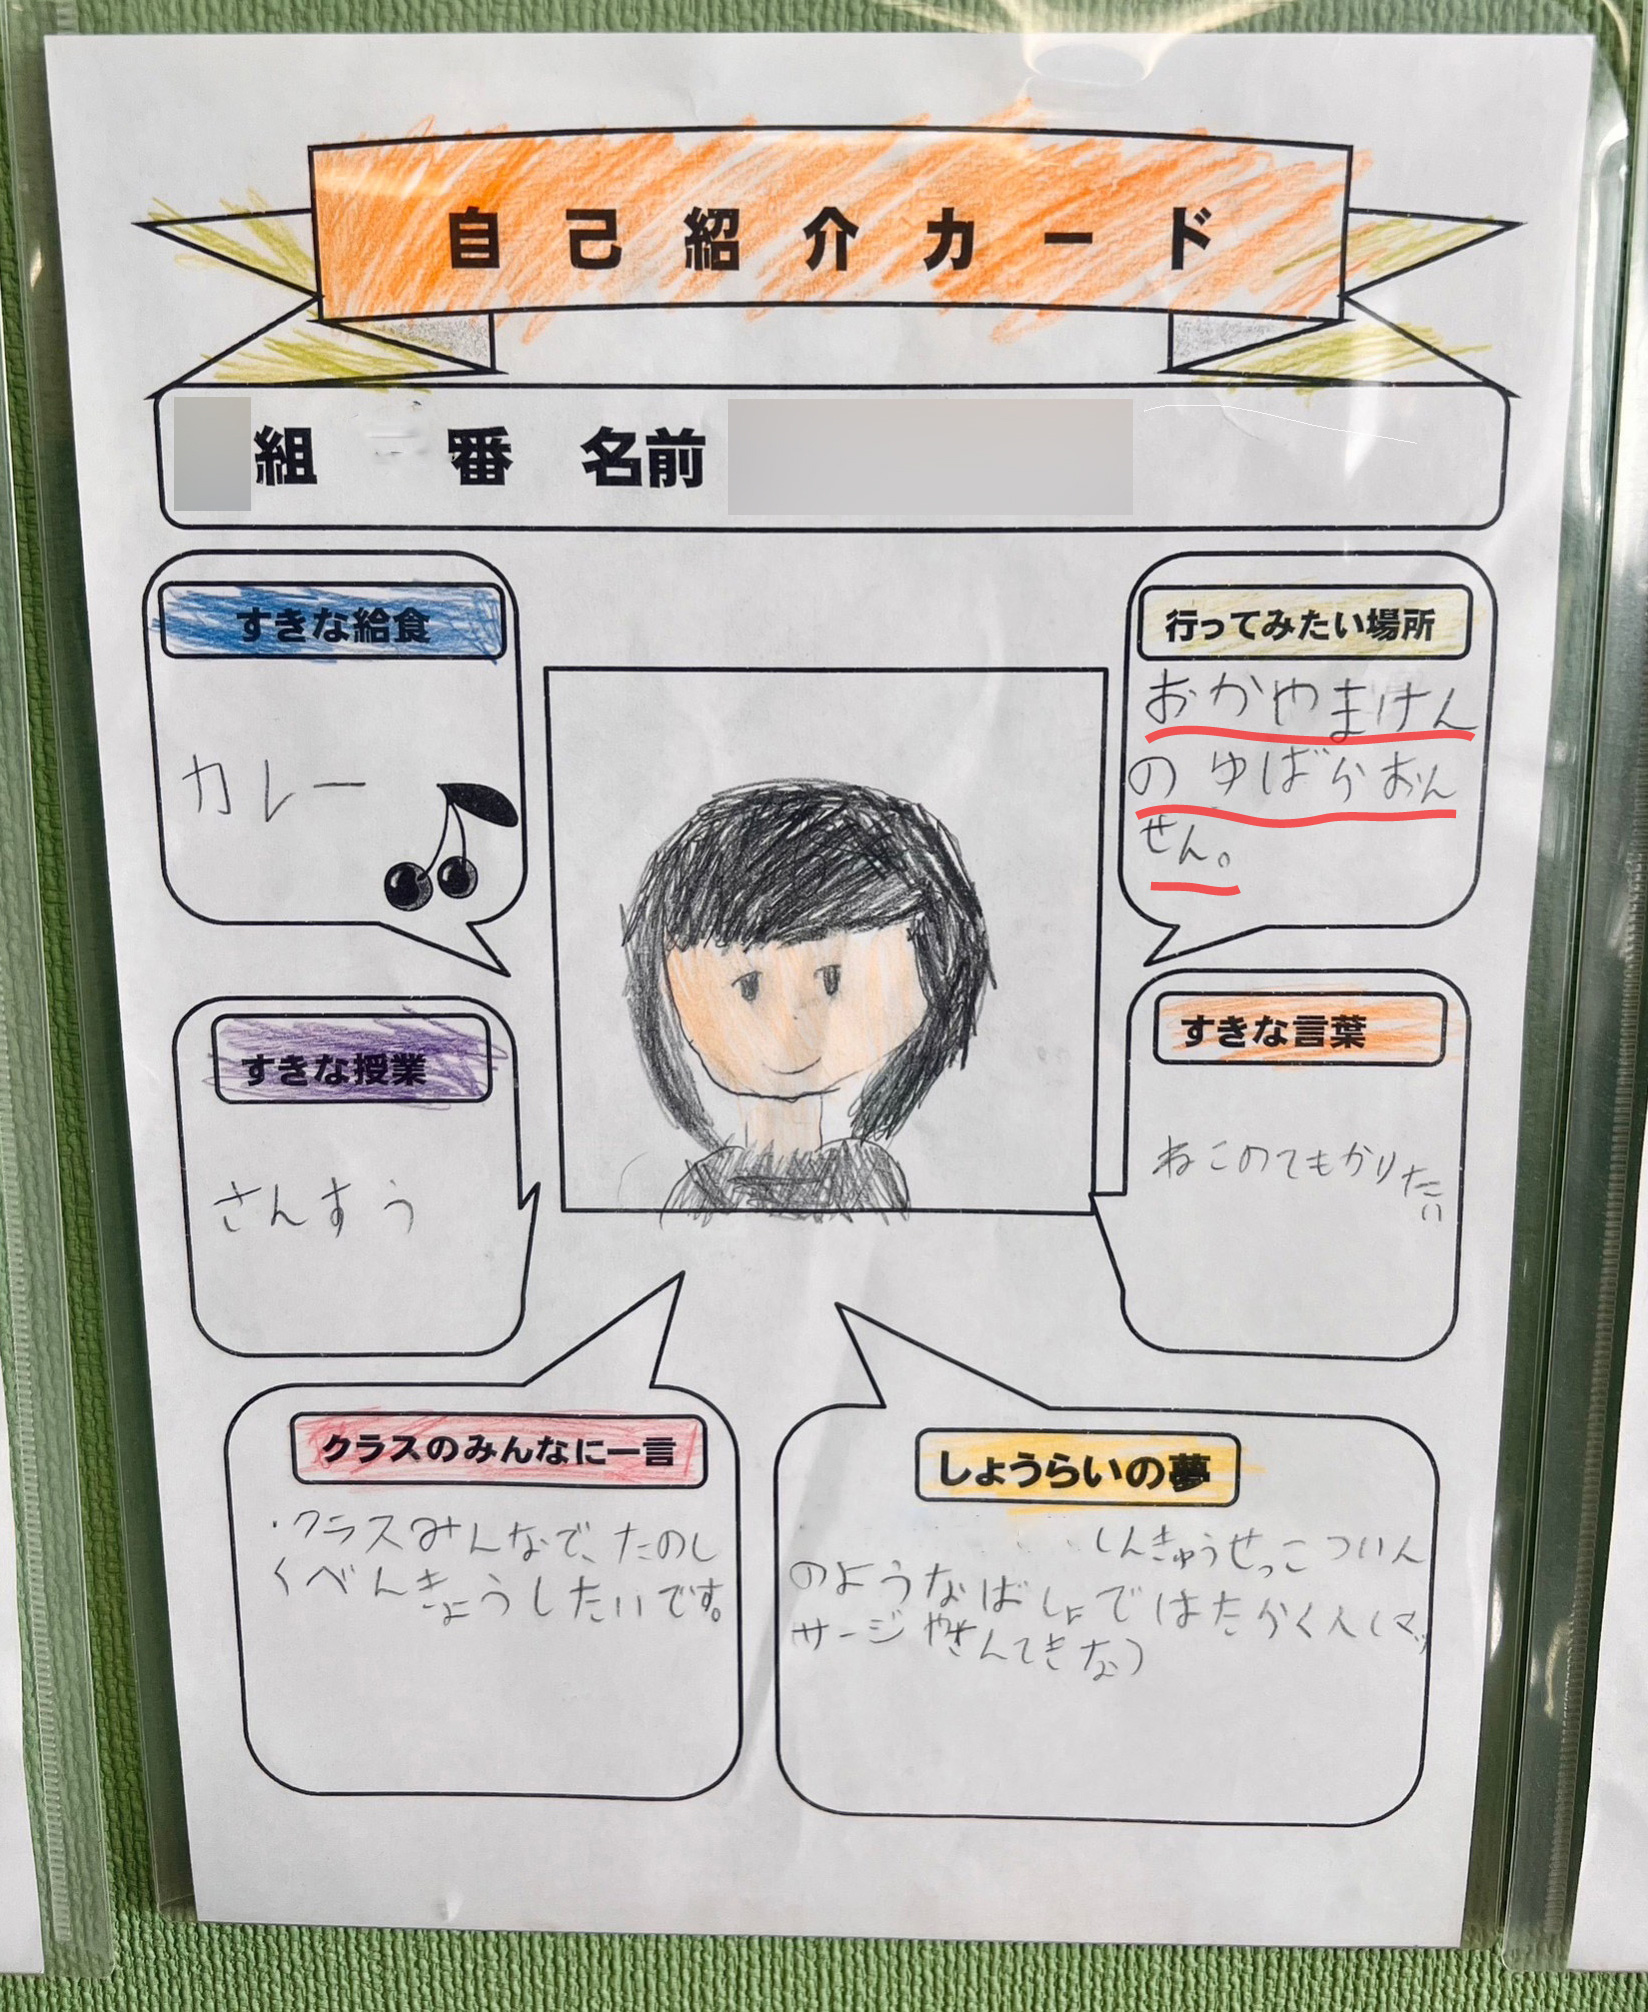 自己紹介カード
組 番 名前
すきな給食
カレー
行ってみたい場所
おかやまけん
のゆばらおん
せん。
すきな授業
さんすう
すきな言葉
ねこのてもかりたい
クラスのみんなに一言
・クラスみんなで、たのし
くべんきょうしたいです。
しょうらいの夢
しんきゅうせっこついん
のようなばしょではたらく人(マッ
サージやさんてきな)